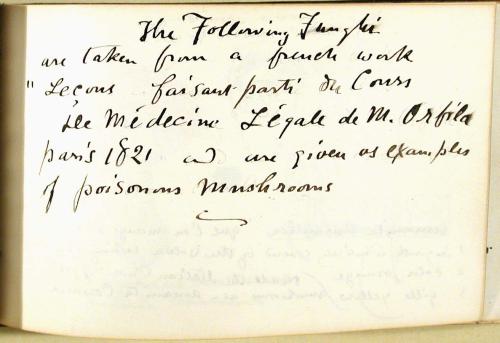 The Following Funghi
are taken from a french work
"Leçons faisant parti du Cours
de Médecine Légale de M. Orfila
paris 1821 and are given as examples
of poisonous Mushrooms